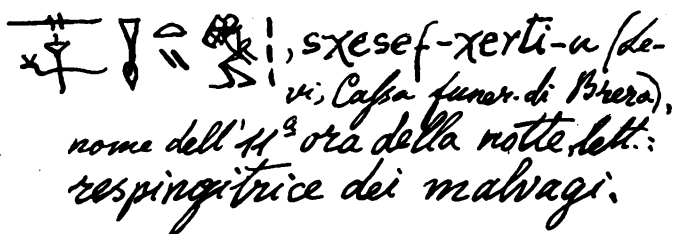 , sχesef-χerti-u (Le-
vi, Cassa funer. di Brera),
nome dell'11ª ora della notte, lett.:
respingitrice dei malvagi.